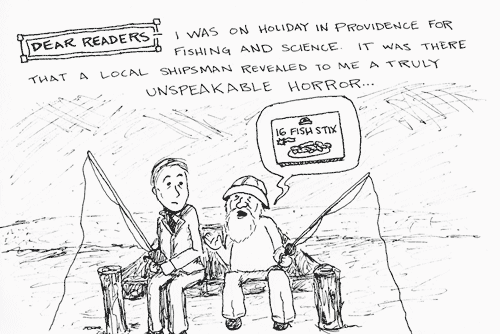 DEAR READERS I WAS ON HOLIDAY IN PROVIDENCE FOR
FISHING AND SCIENCE. IT WAS THERE
THAT A LOCAL SHIPSMAN REVEALED TO ME A TRULY
UNSPEAKABLE HORROR...
16 FISH STIX